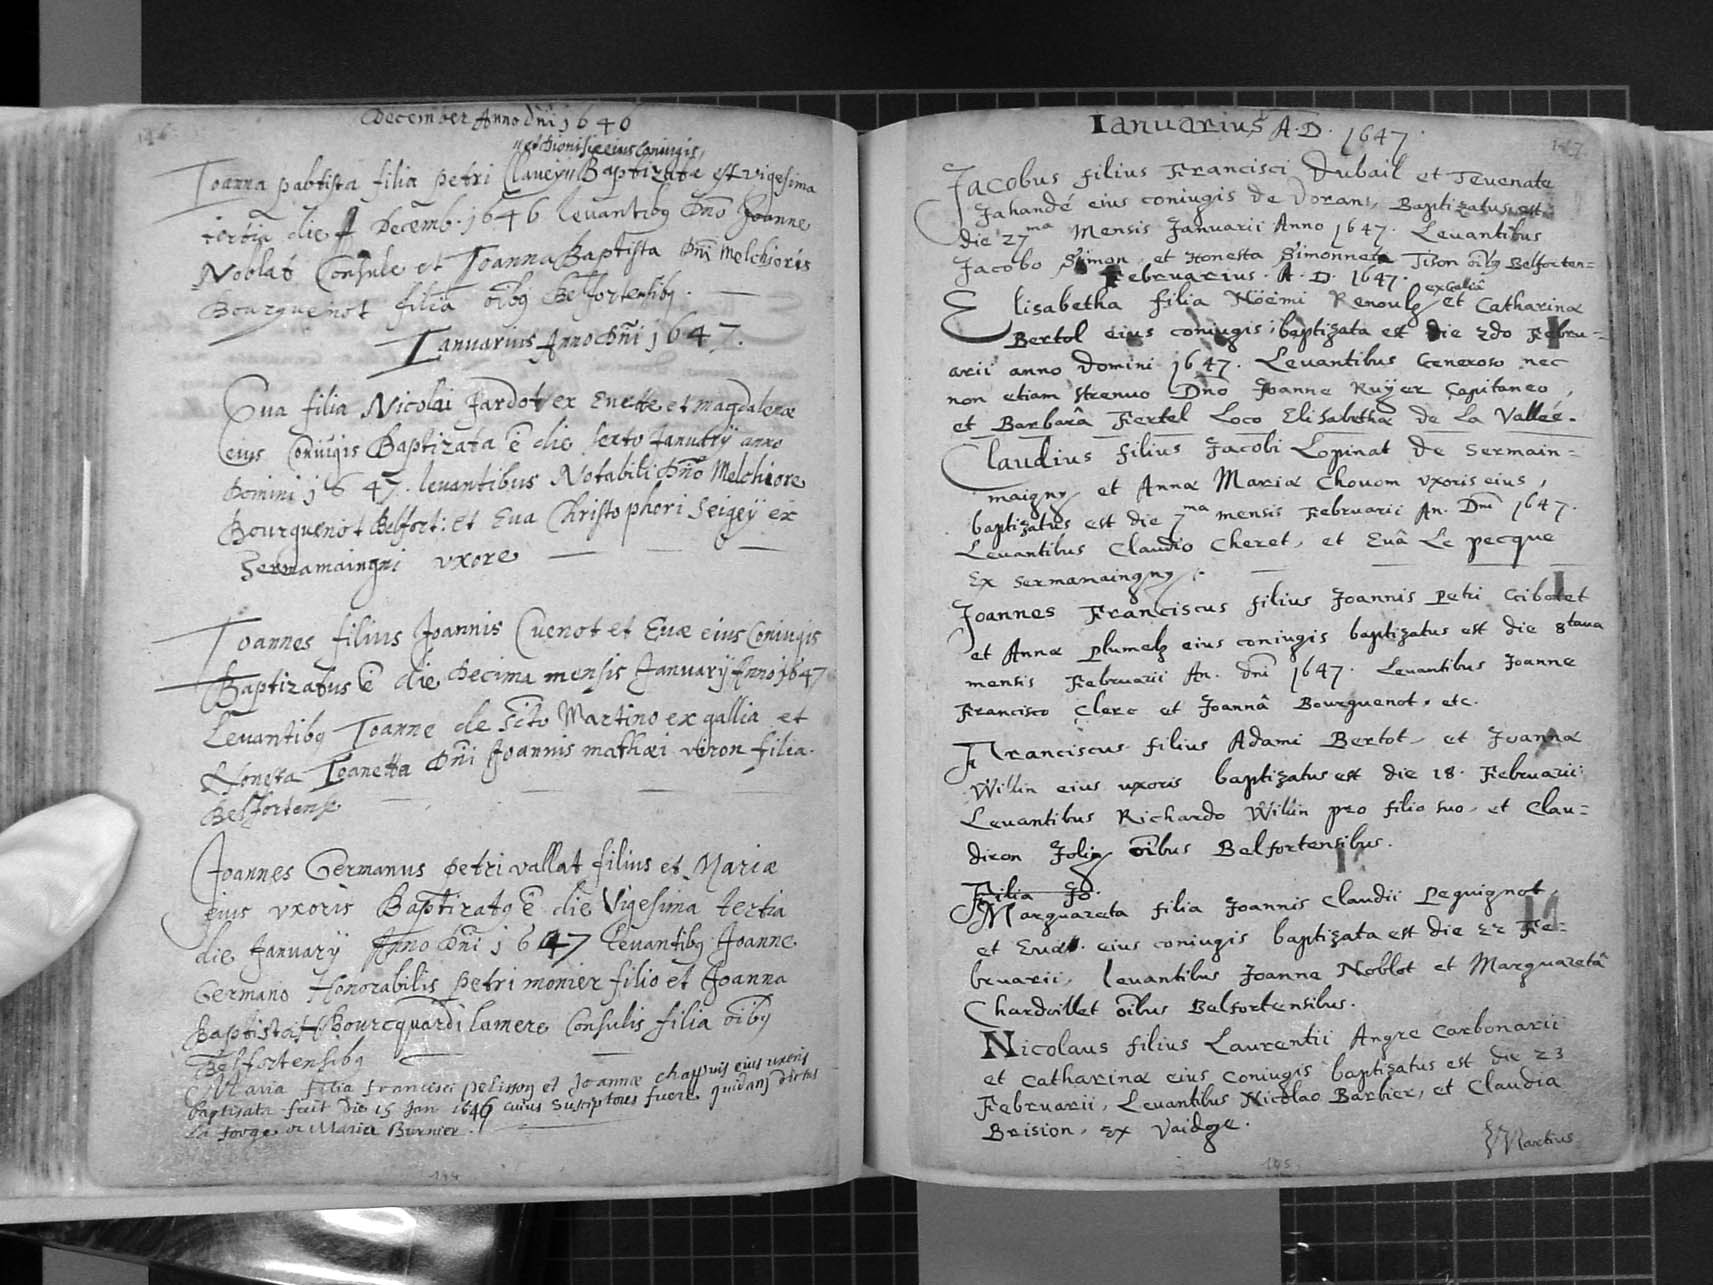 146
December Anno Dñi 1646
et Dionisiæ eius Coniugis,
Joanna pabtista filia petri Claveÿi Baptizata est vigesima
tertia die Decemb. 1646 levantibg Dño Joanne
Noblat Consule et Joanna Baptista Dñi Melchioris
Bourquenot filia oïbg Belfortensibg.
Ianuarius Anno Dñi 1647.
Eva filia Nicolai Jardot ex Enette et magdalenæ
eius Coniugis Baptizata ē die sexto Januarÿ anno
Domini 1647. levantibus Notabili Dño Melchiore
Bourquenot Belfort: et Eva Christophori Seigeÿ ex
Sermamaingni uxore
Joannes filius Joannis Cuenot et Evæ eius Coniugis
Baptizatus ē die Decima mensis Januarÿ Anno 1647
Levantibg Joanne de Scto Martino ex gallia et
Honesta Joanetta Dñi Joannis mathæi viron filia.
Belfortens
Joannes Germanus petri vallat filius et Mariæ
eius vxoris Baptizatg ē die Vigesima tertia
die Januarÿ Anno Dñi 1647 levantibg Joanne
Germano Honorabilis petri monier filio et Joanna
Baptista Bourcquardi lamere Consulis filia oibg
Belfortensibg
Maria filia francisci pelisson et Joannæ chappuis eius uxoris
baptisata fuit die 15 Jan 1646 cuius susceptores fuere quidam dictus
la forge et Maria Burnier.
144
Ianuarius A.D. 1647.
147.
Jacobus filius Francisci Dubail et Tevenate
Jahandé eius coniugis de Dorans, Baptizatus est
die 27ma Mensis Januarii Anno 1647. Levantibus
Jacobo Simon, et Honesta Simonneta Tison oïbg Belforten=
Februarius. A.D. 1647.
ex Galliâ
Elisabetha filia Nöëmi Renoulz et Catharinæ
Bertol eius coniugis baptizata est die 2do Febru=
arii anno Domini 1647. Levantibus Generoso nec
non etiam strenuo Dno Joanne Ruÿer Capitaneo,
et Barbarâ Fertel Loco Elisabethæ de La Valleé.
Claudius filius Jacobi Lopinat de Sermain=
maigny et Annæ Mariæ Chovom vxoris eius,
baptizatus est die 7ma mensis Februarii An. Dmi 1647.
Levantibus Claudio Cheret, et Evâ Le pecque
Ex Sermamaingny.
Joannes Franciscus filius Joannis Petri Cibolet
et Annæ Plumelz eius coniugis baptizatus est die 8tava
mensis Februarii An. dni 1647. Levantibus Joanne
Francisco Clerc et Joannâ Bourquenot, etc.
Franciscus filius Adami Bertot, et Joannæ
Willin eius uxoris baptizatus est die 18. Februarii
Levantibus Richardo Willin pro filio suo, et Clau=
dinon Joliz oïbus Belfortensibus.
Filia Jo.
Marguareta filia Joannis Claudii Pequignot,
et Evæ eius coniugis baptizata est die 22 Fe=
bruarii, levantibus Joanne Noblot et Marguaretâ
Chardoillet oïbus Belfortensibus.
Nicolaus filius Laurentii Angre Carbonarii
et Catharinæ eius coniugis baptizatus est die 23
Februarii, Levantibus Nicolao Barbier, et Claudia
Brision, ex Vaidoye.
Martius
145